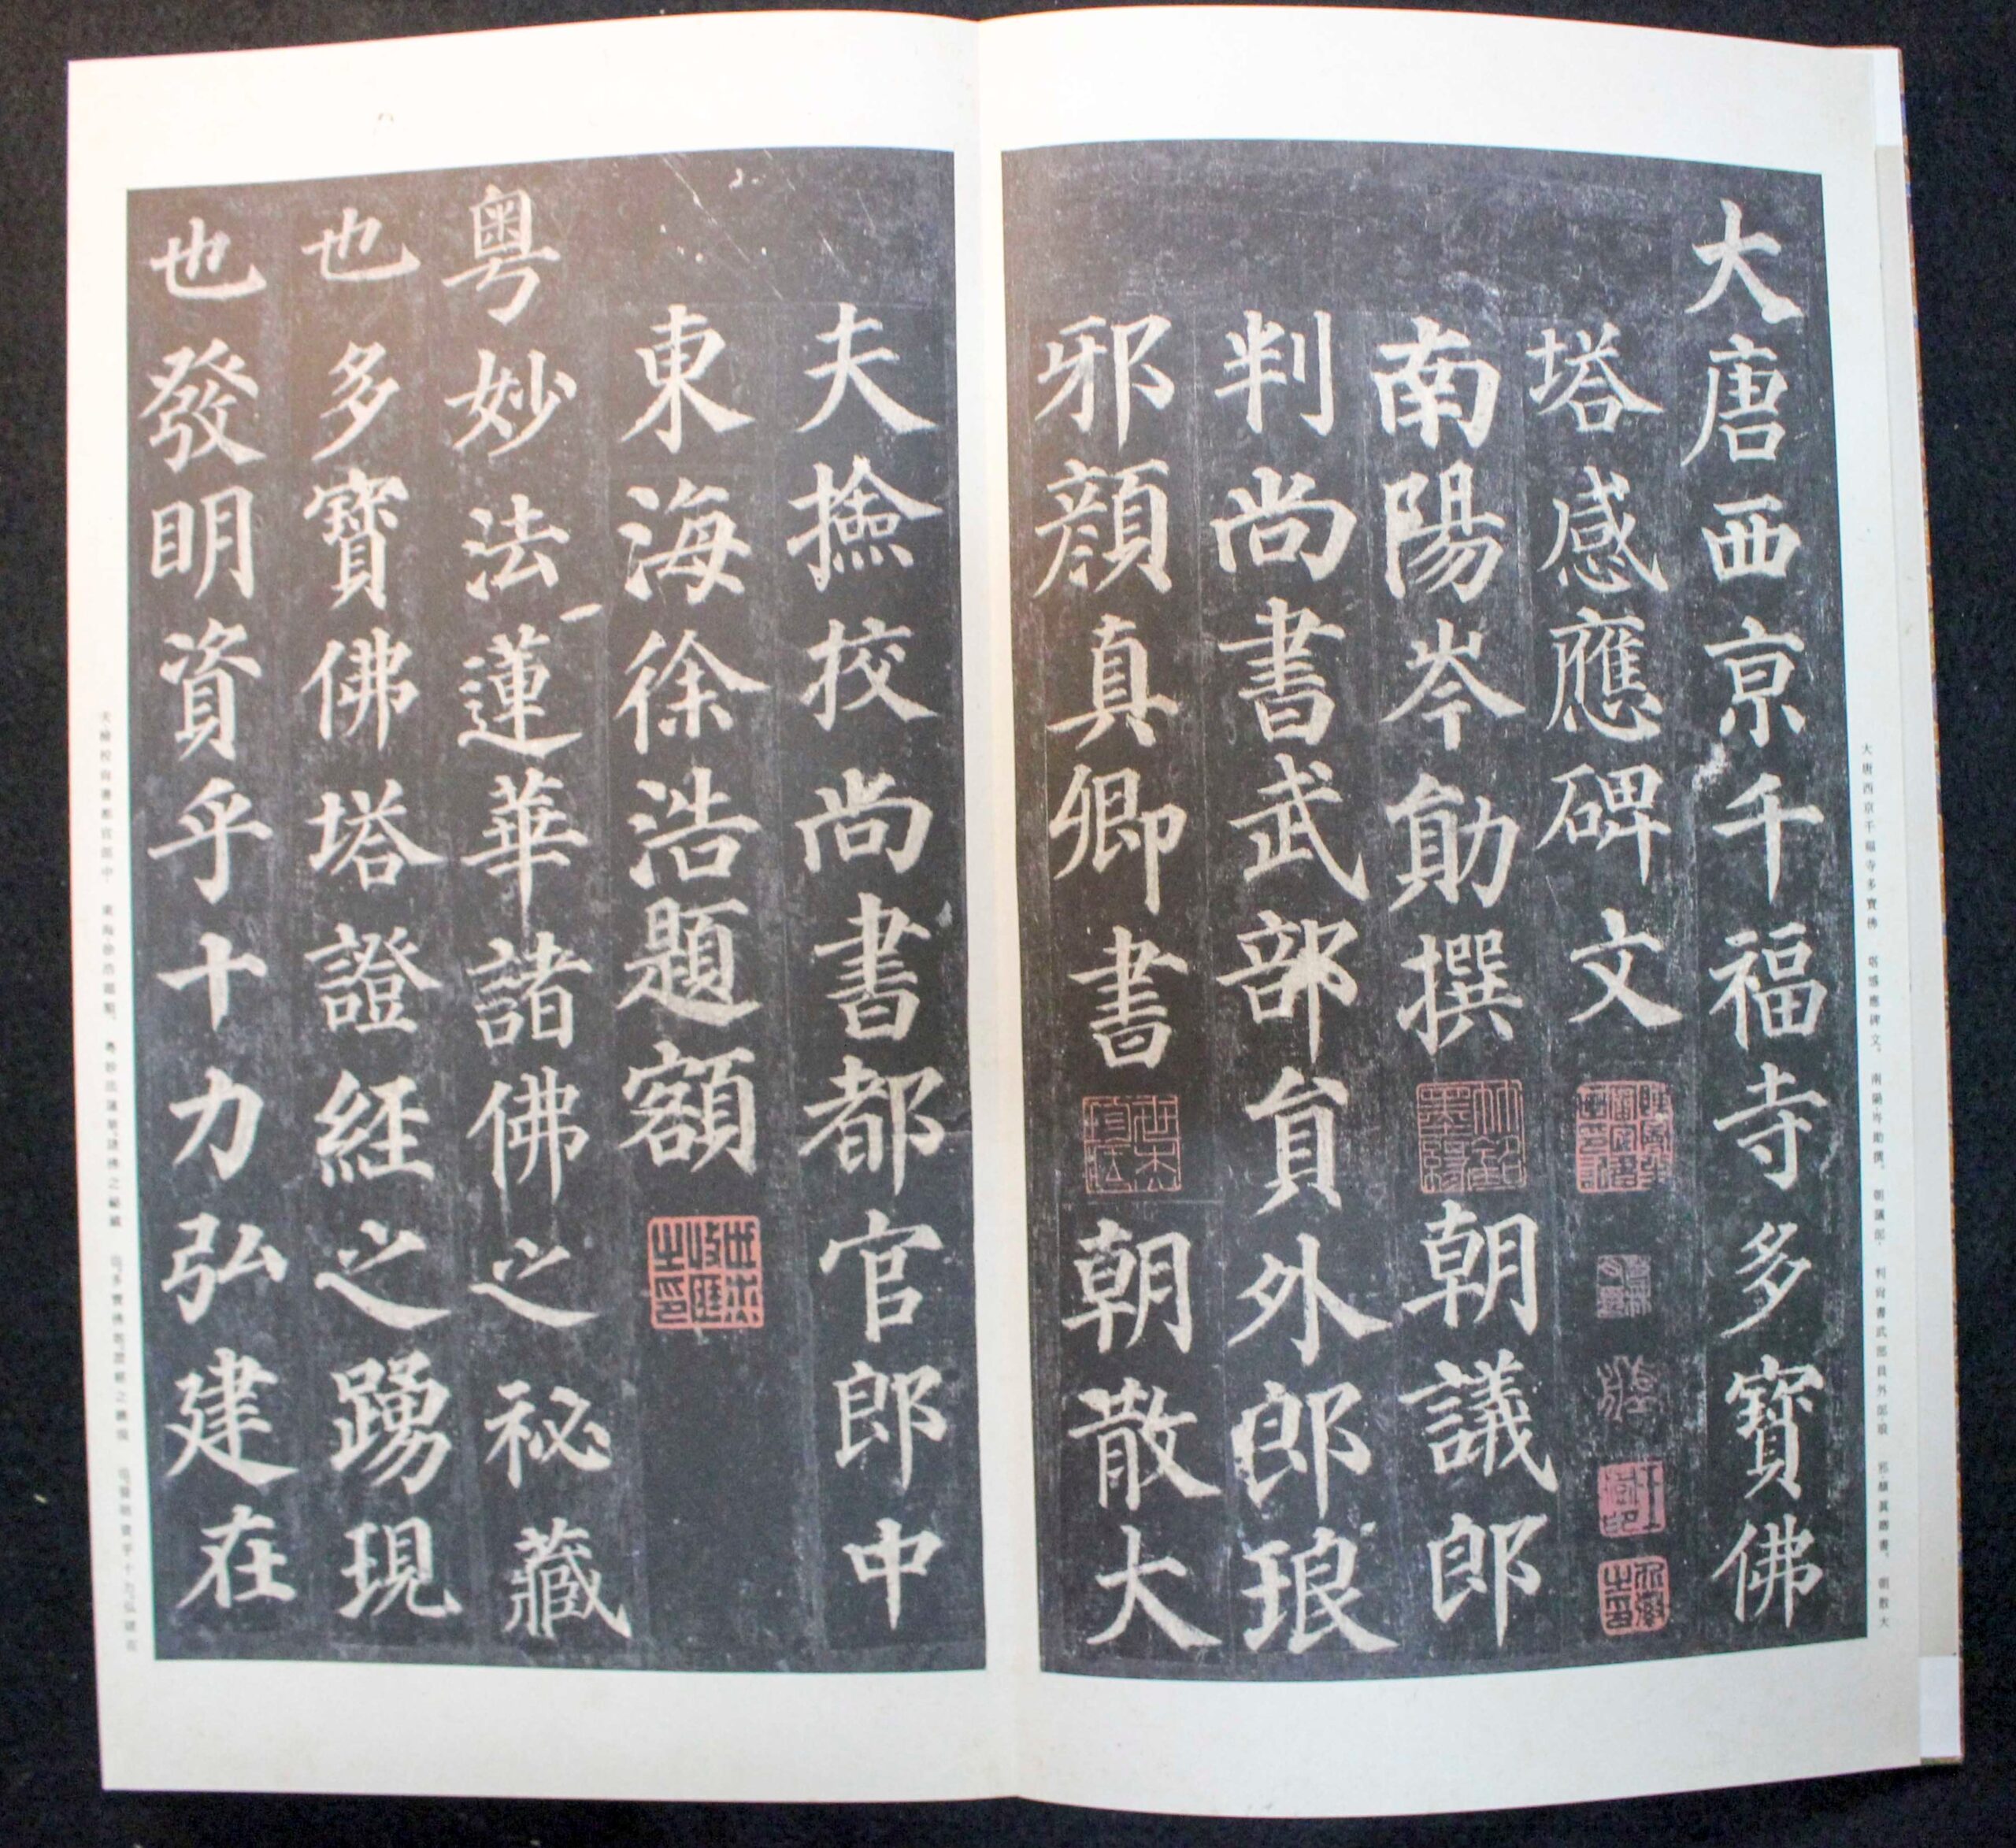 大唐西京千福寺多寶佛
塔感應碑文
南陽岑勛撰 朝議郎
判尚書武部員外郎琅
邪顏真卿書 朝散大
夫撿挍尚書都官郎中
東海徐浩題額
粵妙法蓮華諸佛之祕藏
也多寶佛塔證經之踴現
也發明資乎十力弘建在
大唐西京千福寺多寶佛 塔感應碑文。 南陽岑勛撰。 朝議郎、 判尚書武部員外郎琅 邪顏真卿書。 朝散大
夫檢校尚書都官郎中、 東海徐浩題額。 粵妙法蓮華、諸佛之祕藏 也；多寶佛塔、證經之踴現 也。發明資乎十力、弘建在